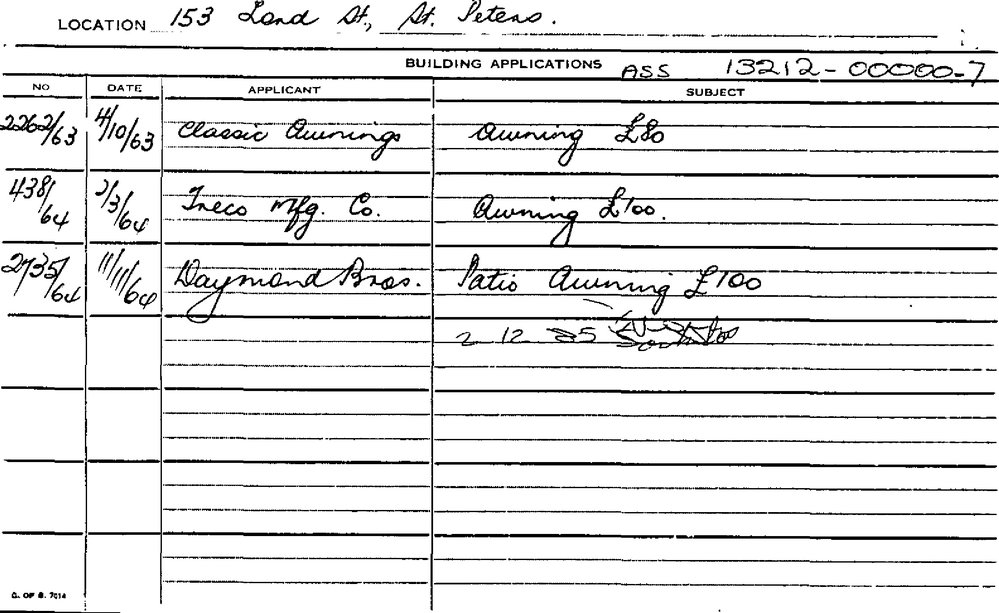 LOCATION 153 Lord St., St. Peters.
BUILDING APPLICATIONS ASS 13212-00000-7
NO DATE APPLICANT SUBJECT
2262/63 4/10/63 Classic Awnings Awning £80
438/64 2/3/64 Treco Mfg. Co. Awning £100.
2735/64 11/11/64 Daymond Bros. Patio Awning £100
2 12
C. OF S. 7014